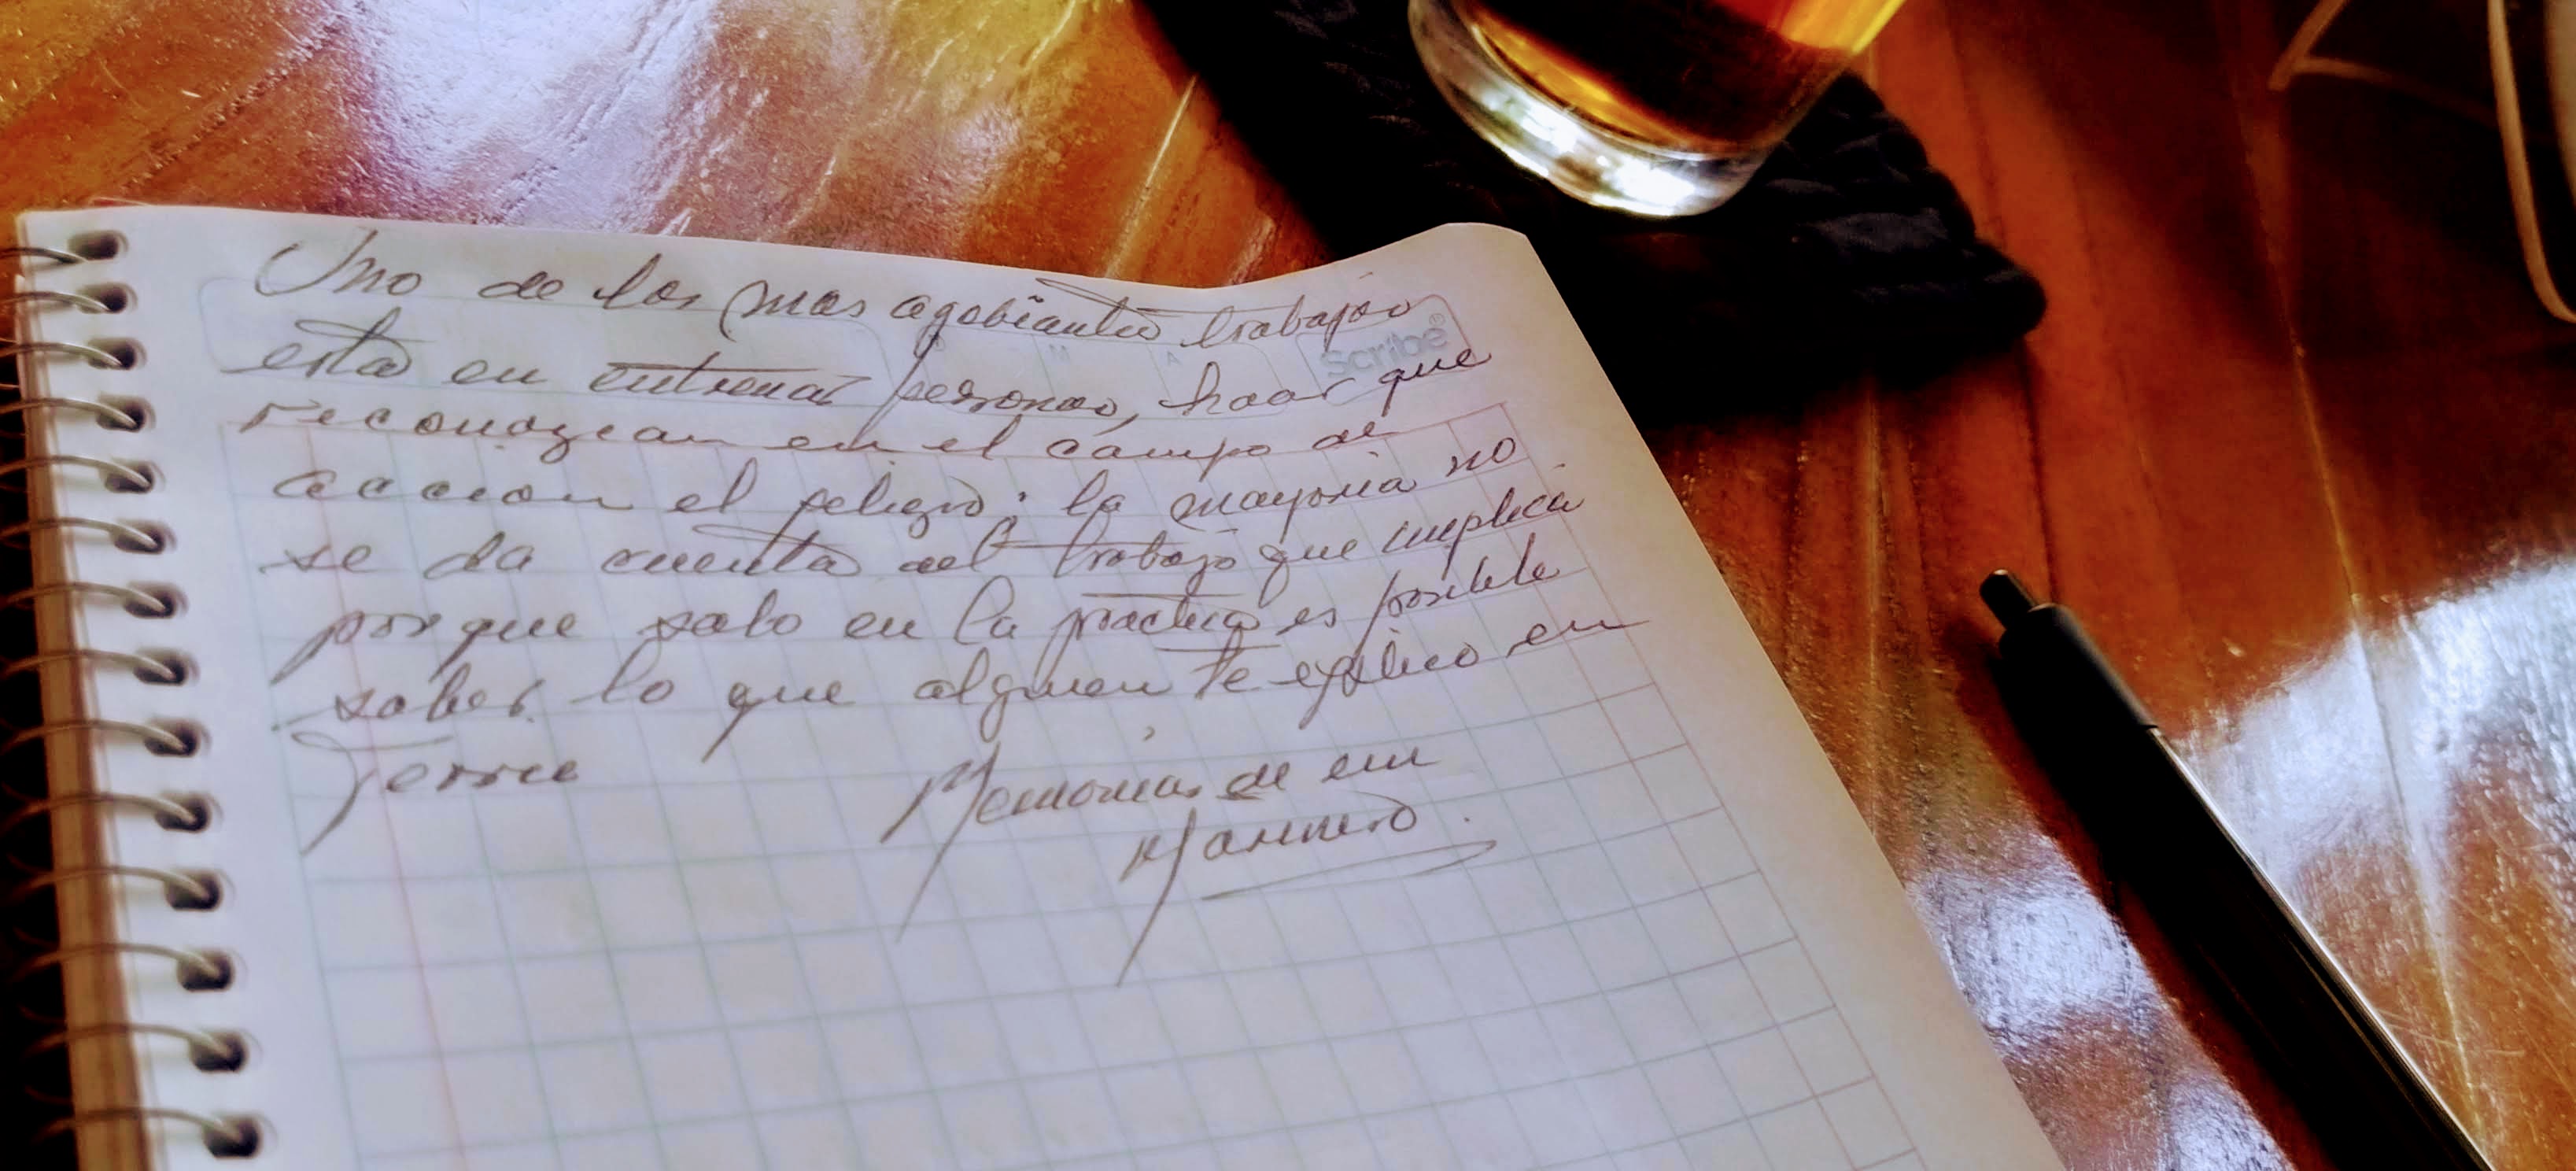 Uno de los mas agobiantes trabajos
Scribe®
esta en entrenar personas, hacer que
reconozcan en el campo de
accion el peligro; la mayoria no
se da cuenta del trabajo que implica
porque solo en la practica es posible
saber lo que alguien te explico en
Memorias de un
Marinero.